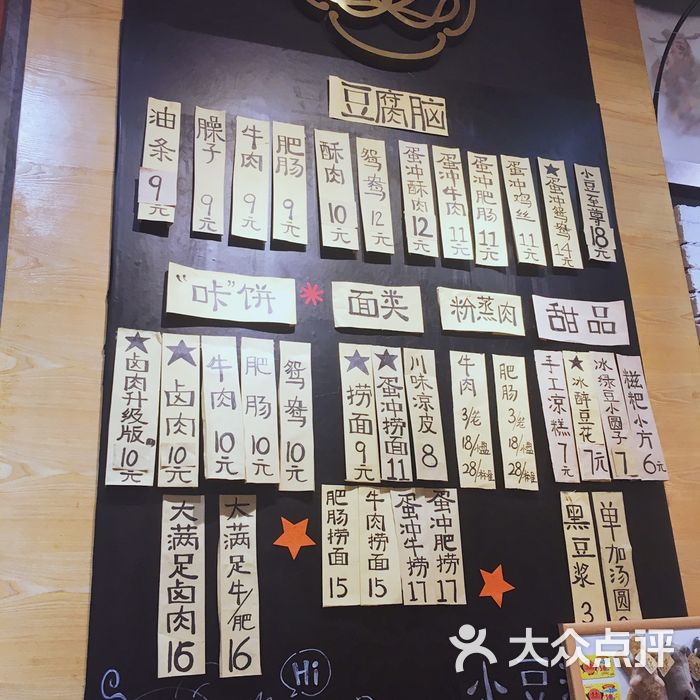 豆腐脑
油条 9元
臊子 9元
牛肉 9元
肥肠 9元
酥肉 10元
鸳鸯 12元
蛋冲酥肉 12元
蛋冲牛肉 11元
蛋冲肥肠 11元
蛋冲鸡丝 11元
★蛋冲鸳鸯 14元
小豆至尊 18元
“咔”饼
★卤肉升级版 10元
★卤肉 10元
牛肉 10元
肥肠 10元
鸳鸯 10元
大满足卤肉 16
大满足牛/肥 16
面类
★捞面 9元
★蛋冲捞面 11
川味凉皮 8
肥肠捞面 15
牛肉捞面 15
蛋冲牛捞 17
蛋冲肥捞 17
粉蒸肉
牛肉 3/笼 18/小盘 28/标盘
肥肠 3/笼 18/小盘 28/标盘
甜品
手工凉糕 7元
★冰醉豆花 7元
冰绿豆小圆子 7
糍粑小方 6元
黑豆浆 3
单加汤圆
Hi
小豆
大众点评